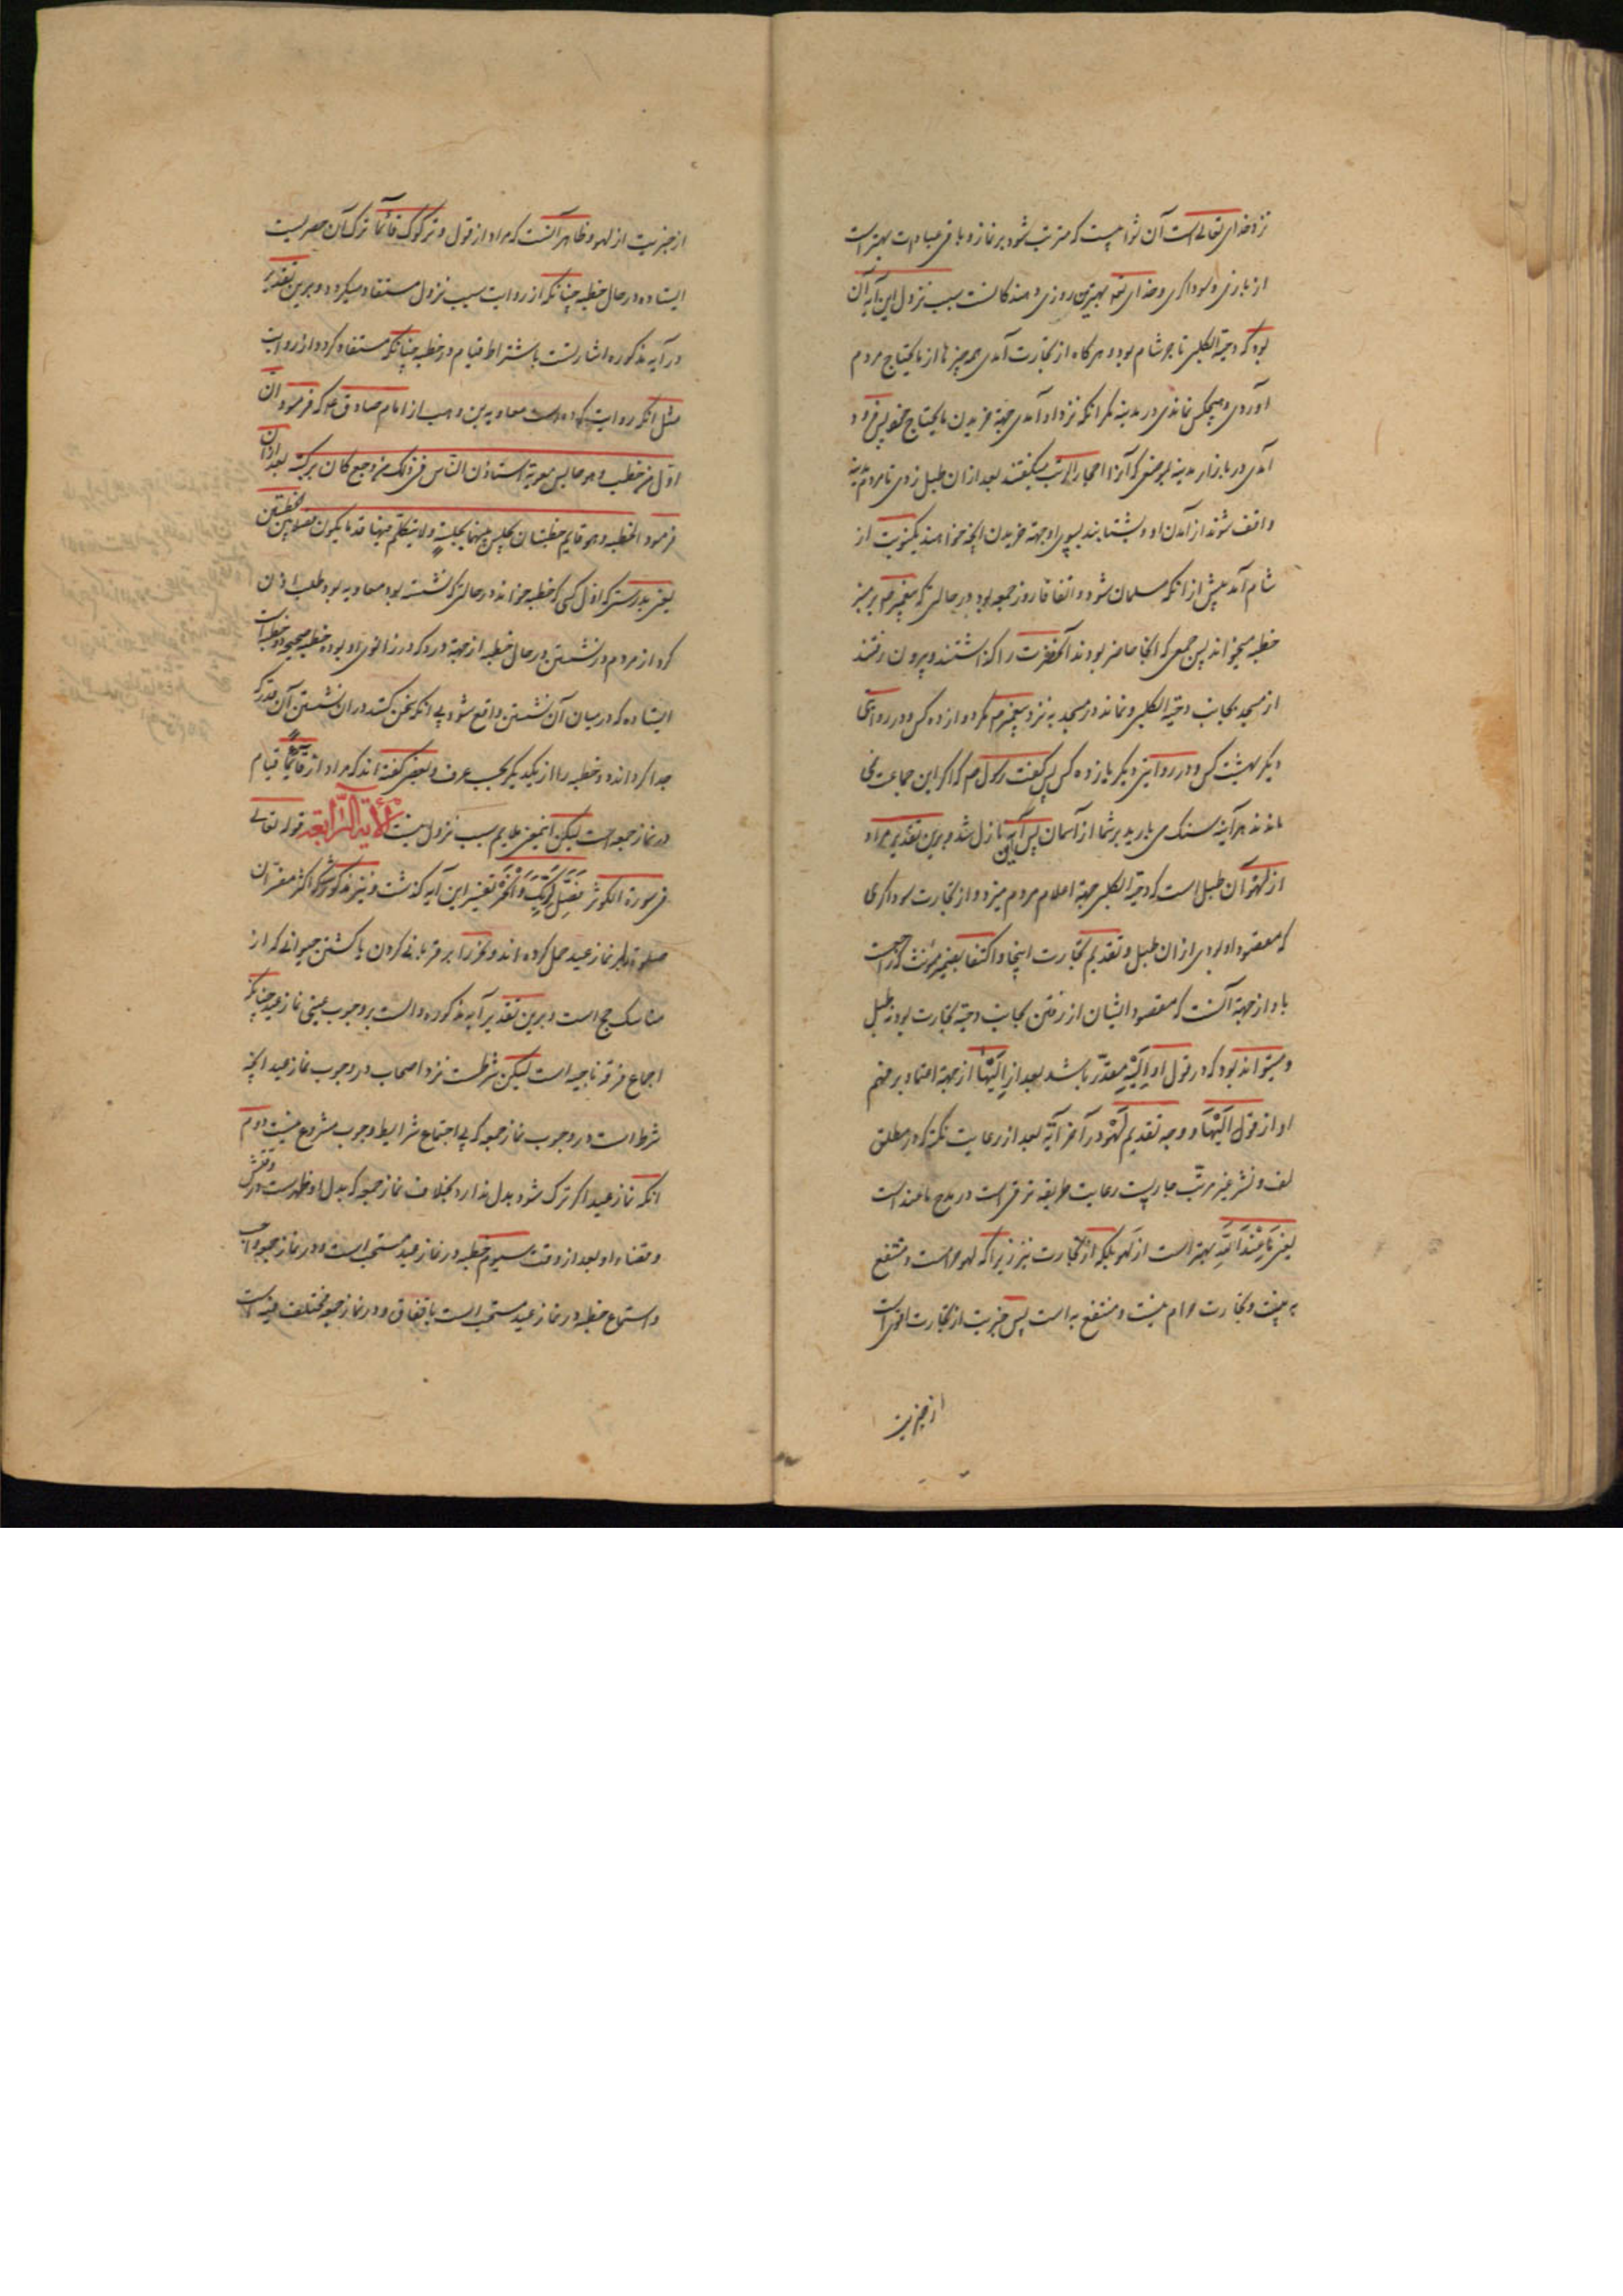 نزد خدای تعالی است آن ثوابیست که مترتب شود بر نماز و باقی عبادات بهتر است
از بازی و سوداگری و خدای تعالی بهترین روزی دهندگانست سبب نزول این آیه آن
بود که دحیة الکلبی تاجر شام بود و هرگاه از تجارت آمدی همه چیزها از مایحتاج مردم
آوردی و هیچکس نماندی در مدینه مگر آنکه نزد او آمدی جهة خریدن مایحتاج خود پس فرود
آمدی در بازار مدینه بموضعی که آنرا احجار الزیت میگفتند بعد از ان طبل زدی تا مردم مدینه
واقف شوند از آمدن او و بشتابند بسوی او جهة خریدن آنچه خواهند یکنوبت از
شام آمد پیش از آنکه مسلمان شود و اتفاقا روز جمعه بود در حالتی که پیغمبر بر منبر
خطبه میخواند پس جمعی که آنجا حاضر بودند آنحضرت را گذاشتند و بیرون رفتند
از مسجد بجانب دحیة الکلبی و نماند در مسجد به نزد پیغمبر ص مگر دوازده کس و در روایتی
دیگر هشت کس و در روایتی دیگر یازده کس پس گفت رسول ص که اگر این جماعت نمی
ماندند هر آینه سنگ می بارید بر شما از آسمان پس این آیه نازل شد و برین تقدیر مراد
از لهو آن طبل است که دحیة الکلبی جهة اعلام مردم میزد و از تجارت سوداگری
که مقصود او بودی از ان طبل و تقدیم تجارت اینجا و اکتفا بضمیر مؤنث که راجعست
باو از جهة آنست که مقصود ایشان از رفتن بجانب دحیه تجارت بود نه طبل
و میتواند بود که در قول او الیه مقدر باشد بعد از الیها از جهة اعتماد بر فهم
او از قول الیها و وجه تقدیم لهو در آخر آیه بعد از رعایت نکته که در مطلق
لف و نشر غیر مرتب جاریست رعایت طریقه ترقی است در مدح ما عند الله
یعنی ما عند الله بهتر است از لهو بلکه از تجارت نیز زیرا که لهو حرامست و منتفع
به نیست و تجارت حرام نیست و منتفع به است پس خیریت از تجارت اقوی است
از خیریت
از خیریت از لهو و ظاهر آنست که مراد از قول و ترکوک قائما ترک آن حضرتست
ایستاده در حال خطبه چنانکه از روایت سبب نزول مستفاد میگردد و برین تقدیر
در آیه مذکوره اشارتست باشتراط قیام در خطبه چنانکه مستفاد گردد از روایات
مثل آنکه روایت کرده است معاویه بن وهب از امام صادق ع که فرمود ان
اول من خطب و هو جالس معویة استاذن الناس فی ذلک من وجع کان برکبته بعد از ان
فرمود الخطبة و هو قایم خطبتان یجلس بینهما جلسة و لا یتکلم فیها قدر ما یکون فصلا بین الخطبتین
یعنی بدرستی که اول کسی که خطبه خواند در حالتی که نشسته بود معاویه بود طلب اذن
کرد از مردم در نشستن در حال خطبه از جهة درد که در زانوی او بود خطبه صحیحه دو خطبه است
ایستاده که در میان آن نشستن واقع شود بی آنکه سخن کند در ان نشستن آن قدر که
جدا گرداند دو خطبه را از یکدیگر بحسب عرف و بعضی گفته اند که مراد از قائما قیام
در نماز جمعه است لیکن اینمعنی ملایم سبب نزول نیست الآیة الرابعة قوله تعالی
فی سورة الکوثر فصل لربک وانحر تفسیر این آیه گذشت و نیز مذکور شد که اکثر مفسران
صلوة را بر نماز عید حمل کرده اند و نحر را بر قربانی کردن یا کشتن حیوانی که از
مناسک حج است و برین تقدیر آیه مذکوره دالست بر وجوب عینی نماز عید چنانکه
اجماع فرقه ناجیه است لیکن شرطست نزد اصحاب در وجوب نماز عید آنچه
شرط است در وجوب نماز جمعه که بی اجتماع شرایط وجوب مشروع نیست دوم
آنکه نماز عید اگر ترک شود بدل ندارد بخلاف نماز جمعه که بدل او ظهر است در وقتش
و قضاء او بعد از وقت سیوم خطبه در نماز عید مستحب است و در نماز جمعه واجب
و استماع خطبه در نماز عید مستحب است باتفاق و در نماز جمعه مختلف فیه است